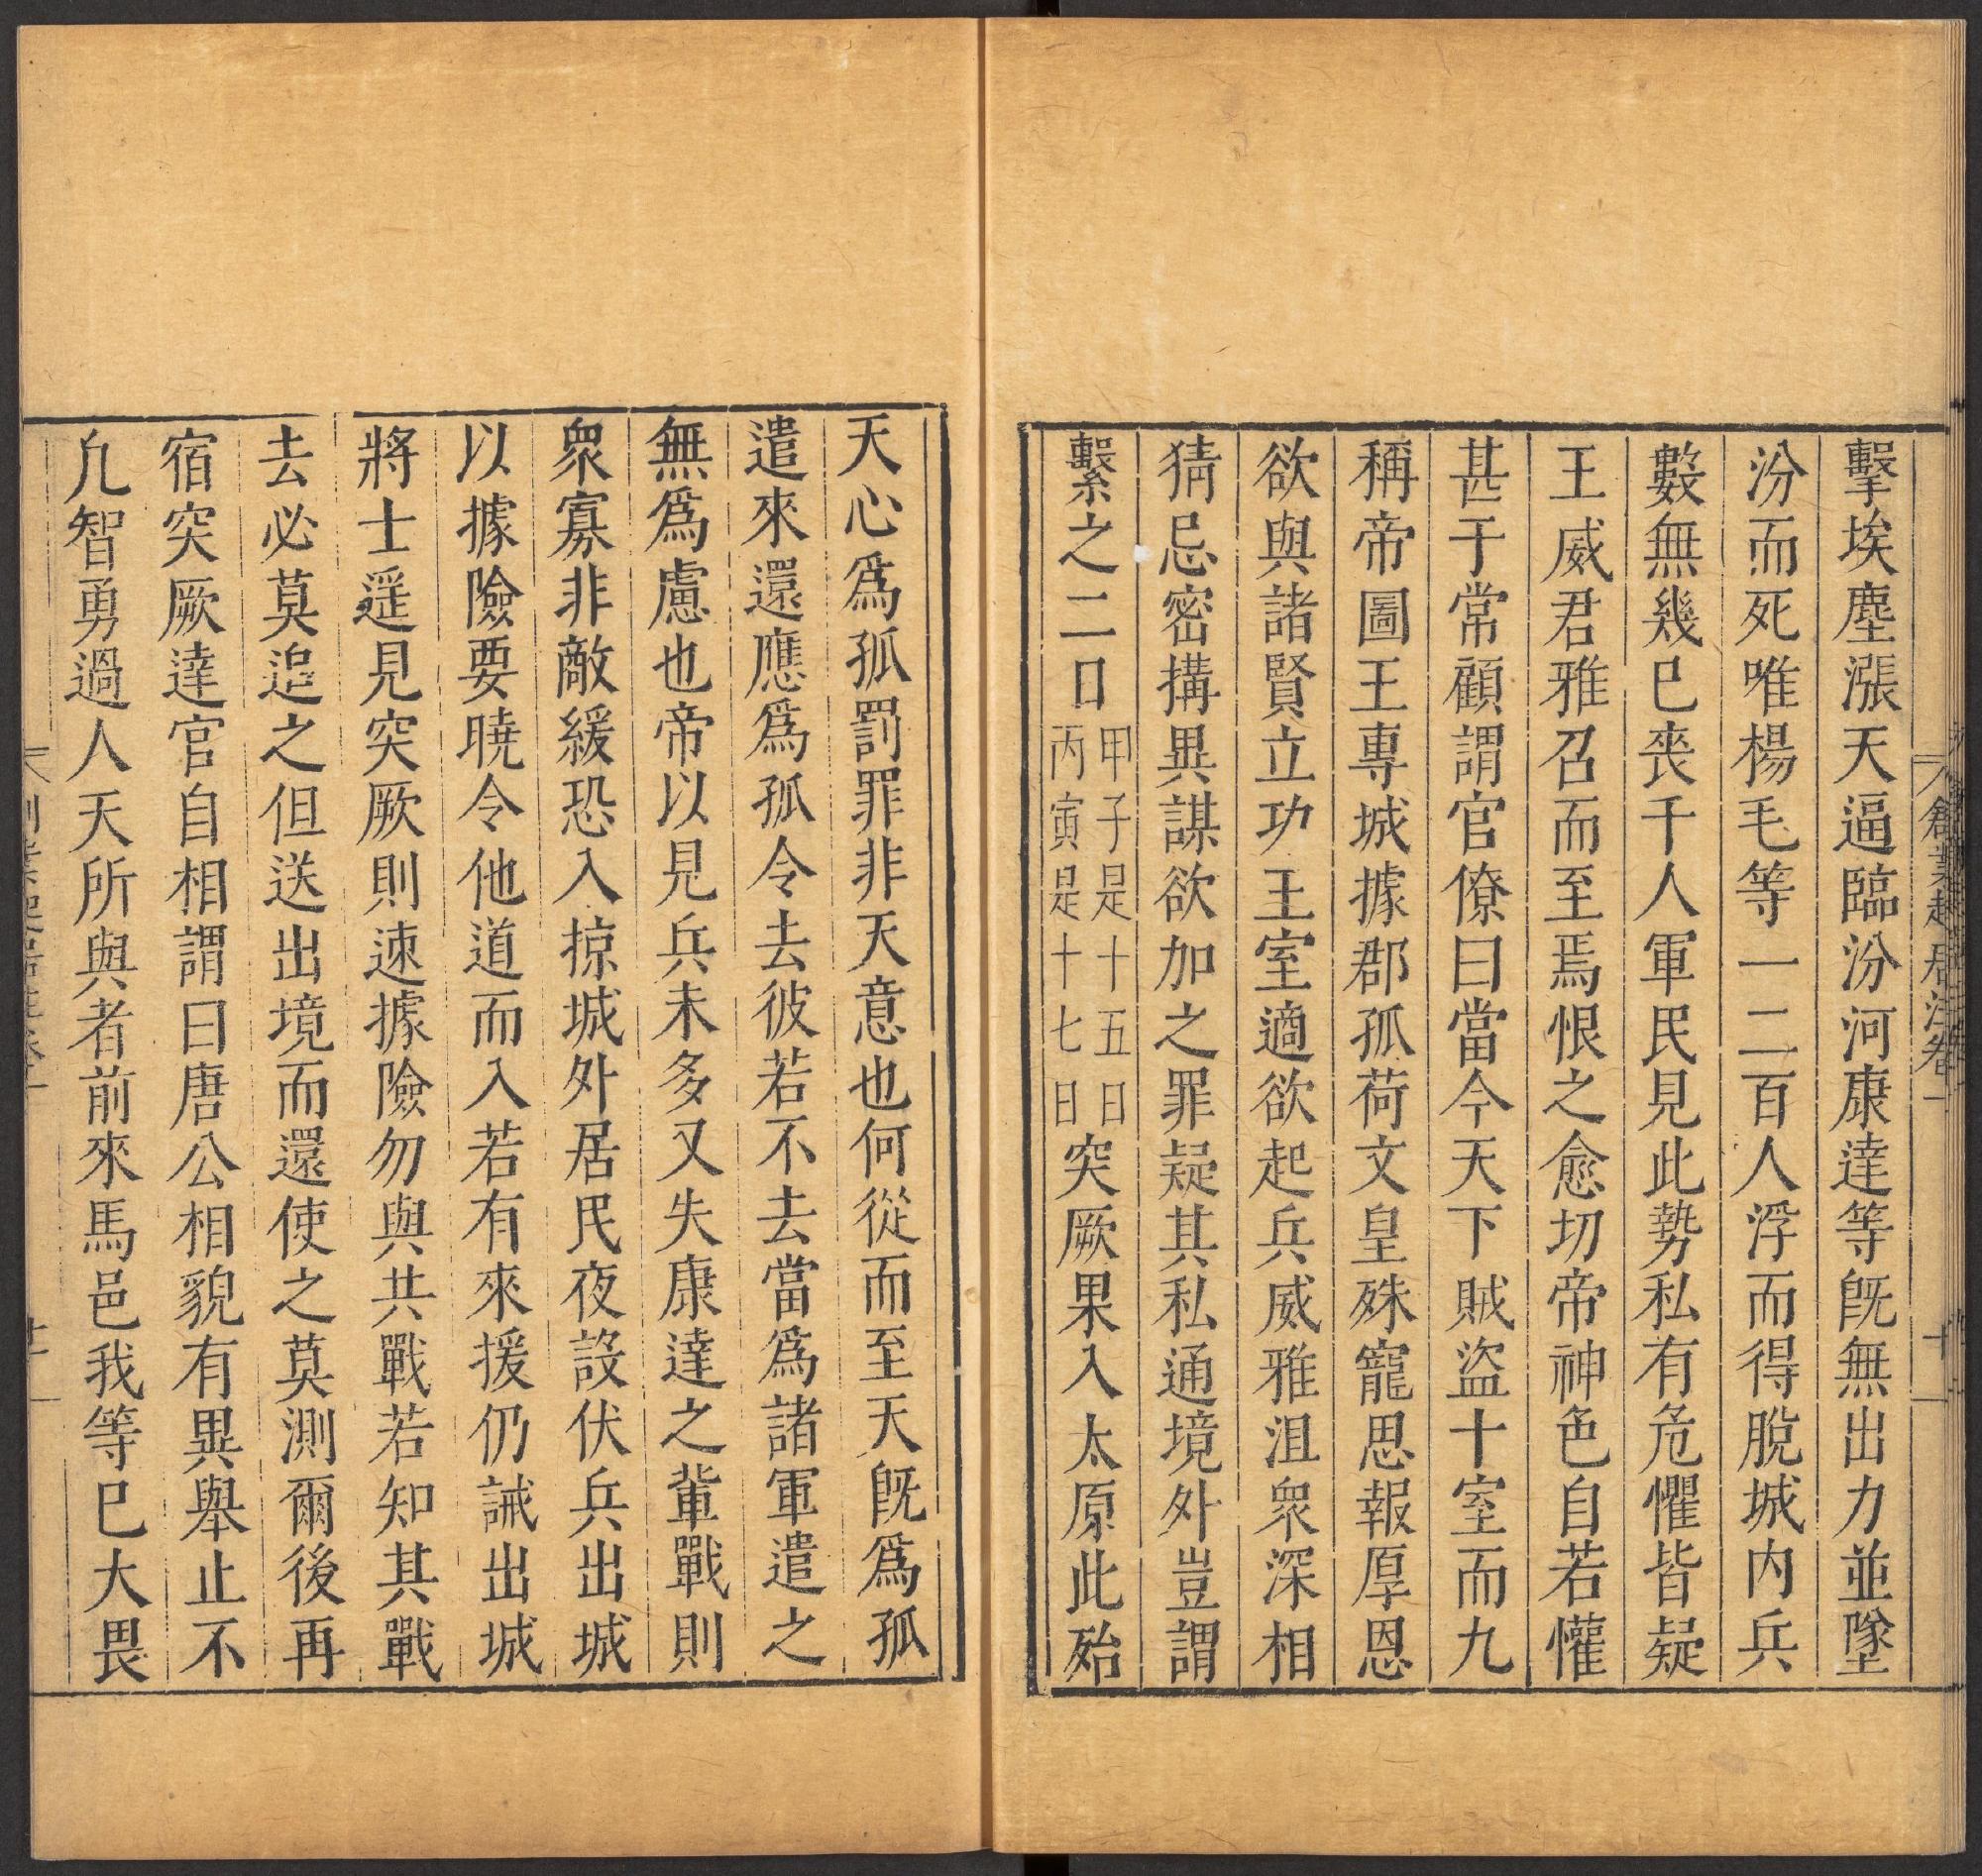 創業起居注卷一
十
擊埃塵漲天逼臨汾河康達等旣無出力並墜
汾而死唯楊毛等一二百人浮而得脫城內兵
數無幾巳喪千人軍民見此勢私有危懼皆疑
王威君雅召而至焉恨之愈切帝神色自若懽
甚于常顧謂官僚曰當今天下賊盜十室而九
稱帝圖王專城據郡孤荷文皇殊寵思報厚恩
欲與諸賢立功王室適欲起兵威雅沮衆深相
猜忌密搆異謀欲加之罪疑其私通境外豈謂
繫之二日甲子是十五日丙寅是十七日突厥果入太原此殆
天心爲孤罰罪非天意也何從而至天旣爲孤
遣來還應爲孤令去彼若不去當爲諸軍遣之
無爲慮也帝以見兵未多又失康達之軰戰則
衆寡非敵緩恐入掠城外居民夜設伏兵出城
以據險要曉令他道而入若有來援仍誡出城
將士遥見突厥則速據險勿與共戰若知其戰
去必莫追之但送出境而還使之莫測爾後再
宿突厥達官自相謂曰唐公相貌有異舉止不
凡智勇過人天所與者前來馬邑我等巳大畏